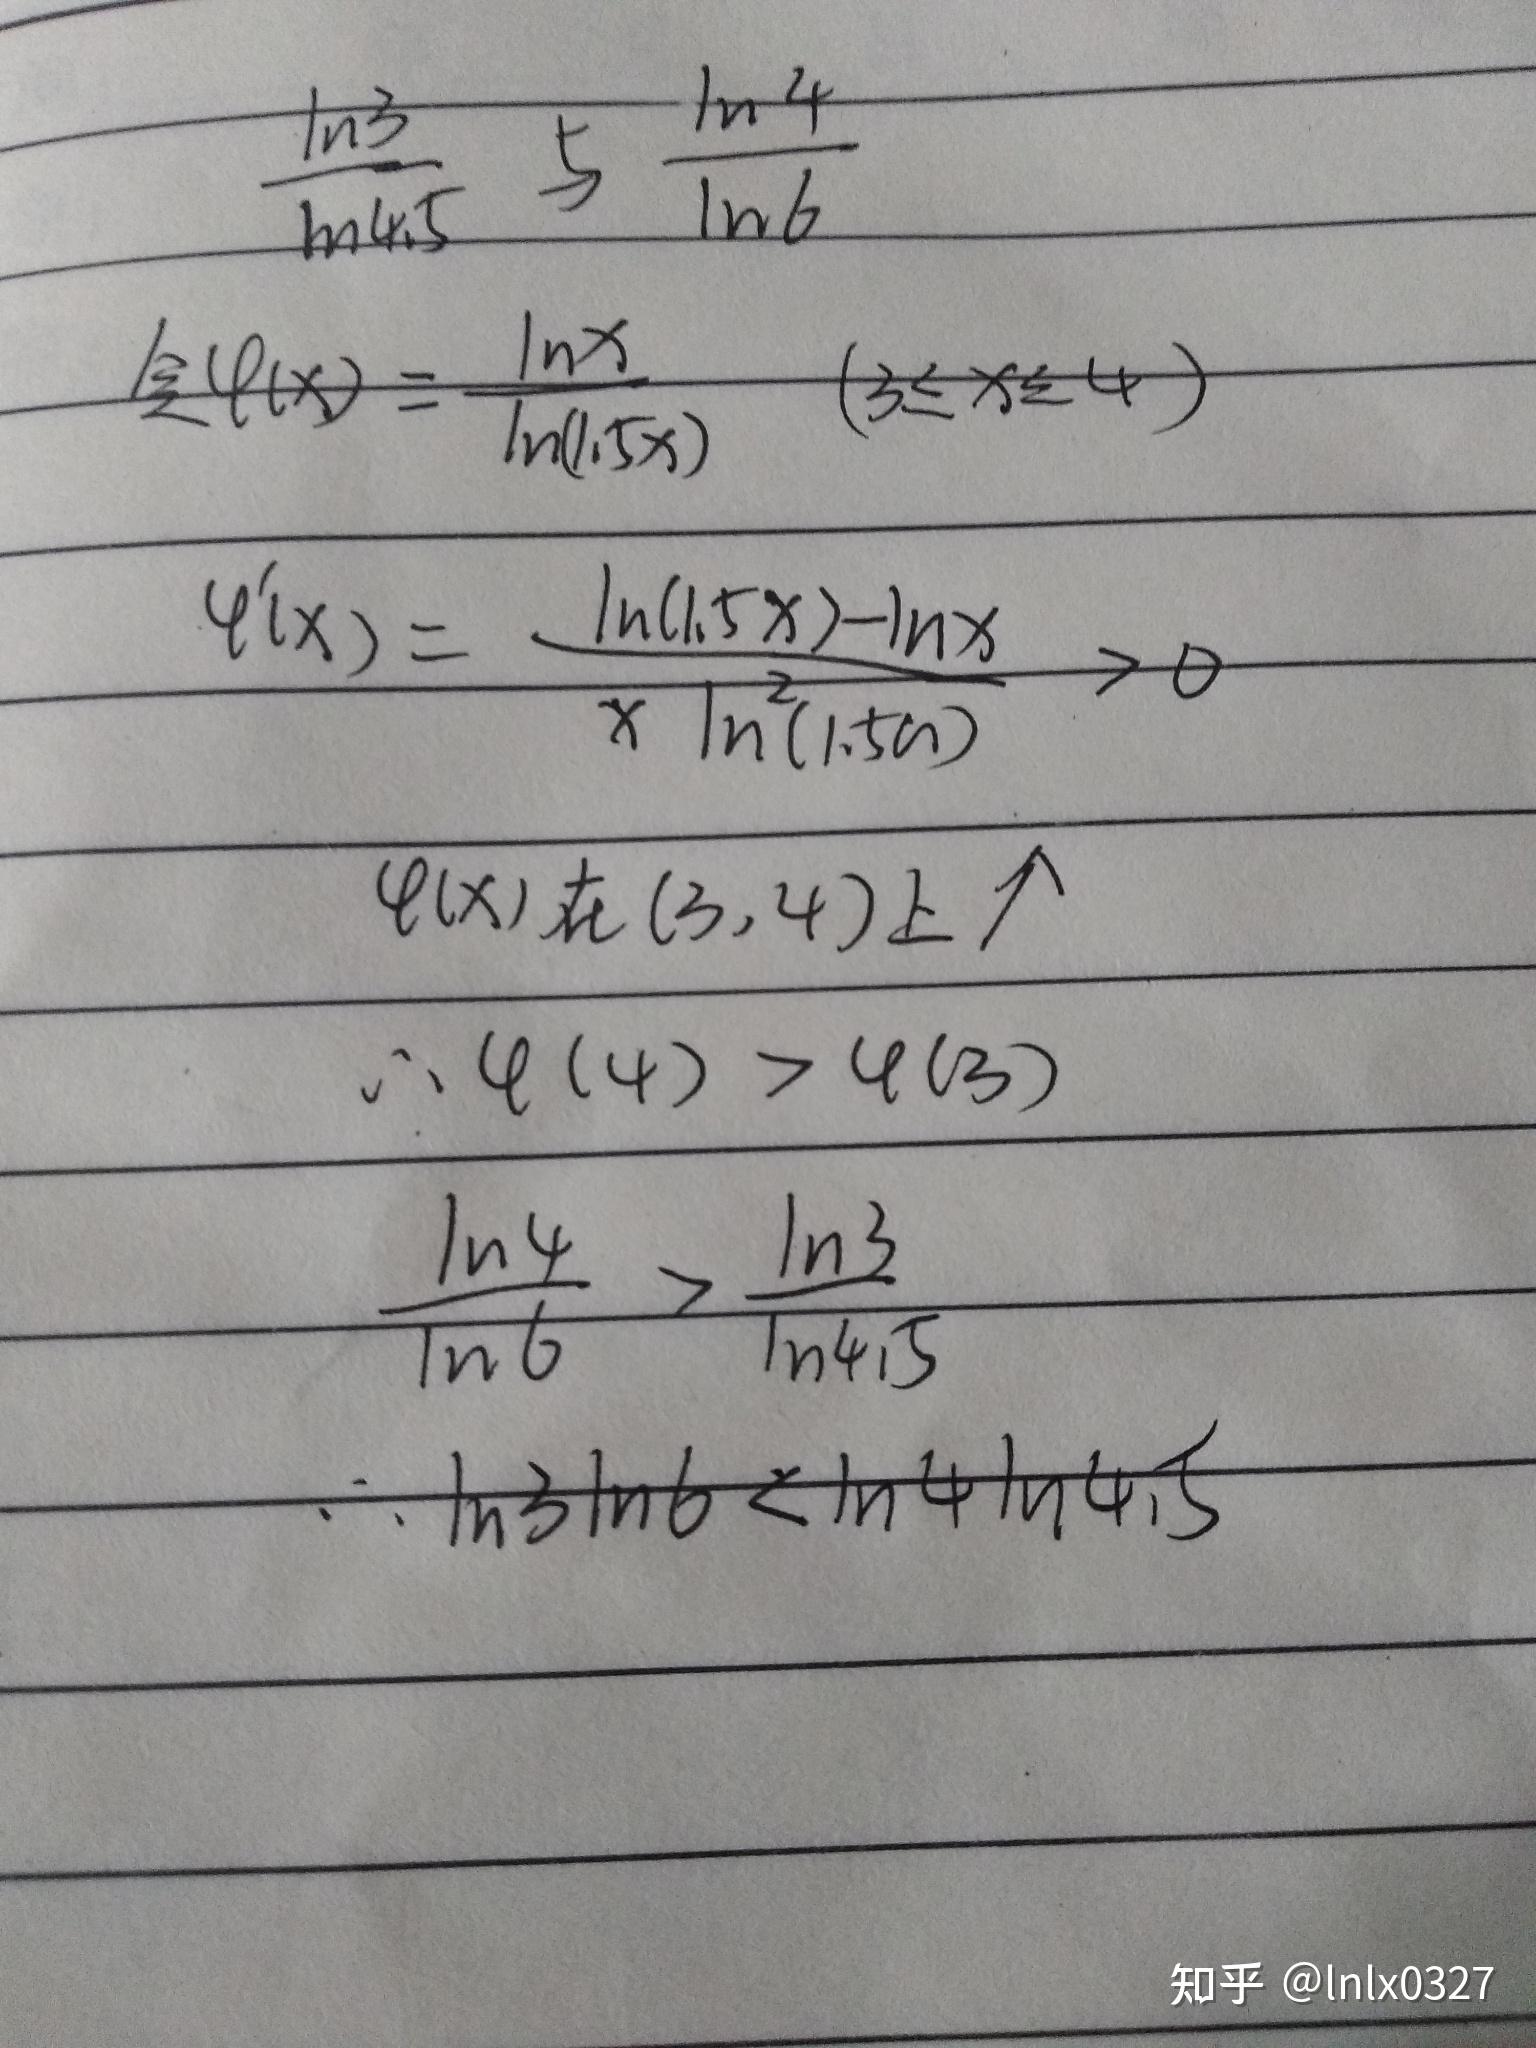 ln3/ln4.5 与 ln4/ln6
令φ(x) = lnx/ln(1.5x) (3≤x≤4)
φ'(x) = (ln(1.5x)-lnx)/(x ln²(1.5x)) > 0
φ(x)在(3,4)上↑
∴φ(4) > φ(3)
ln4/ln6 > ln3/ln4.5
∴ ln3ln6 < ln4ln4.5
知乎 @lnlx0327